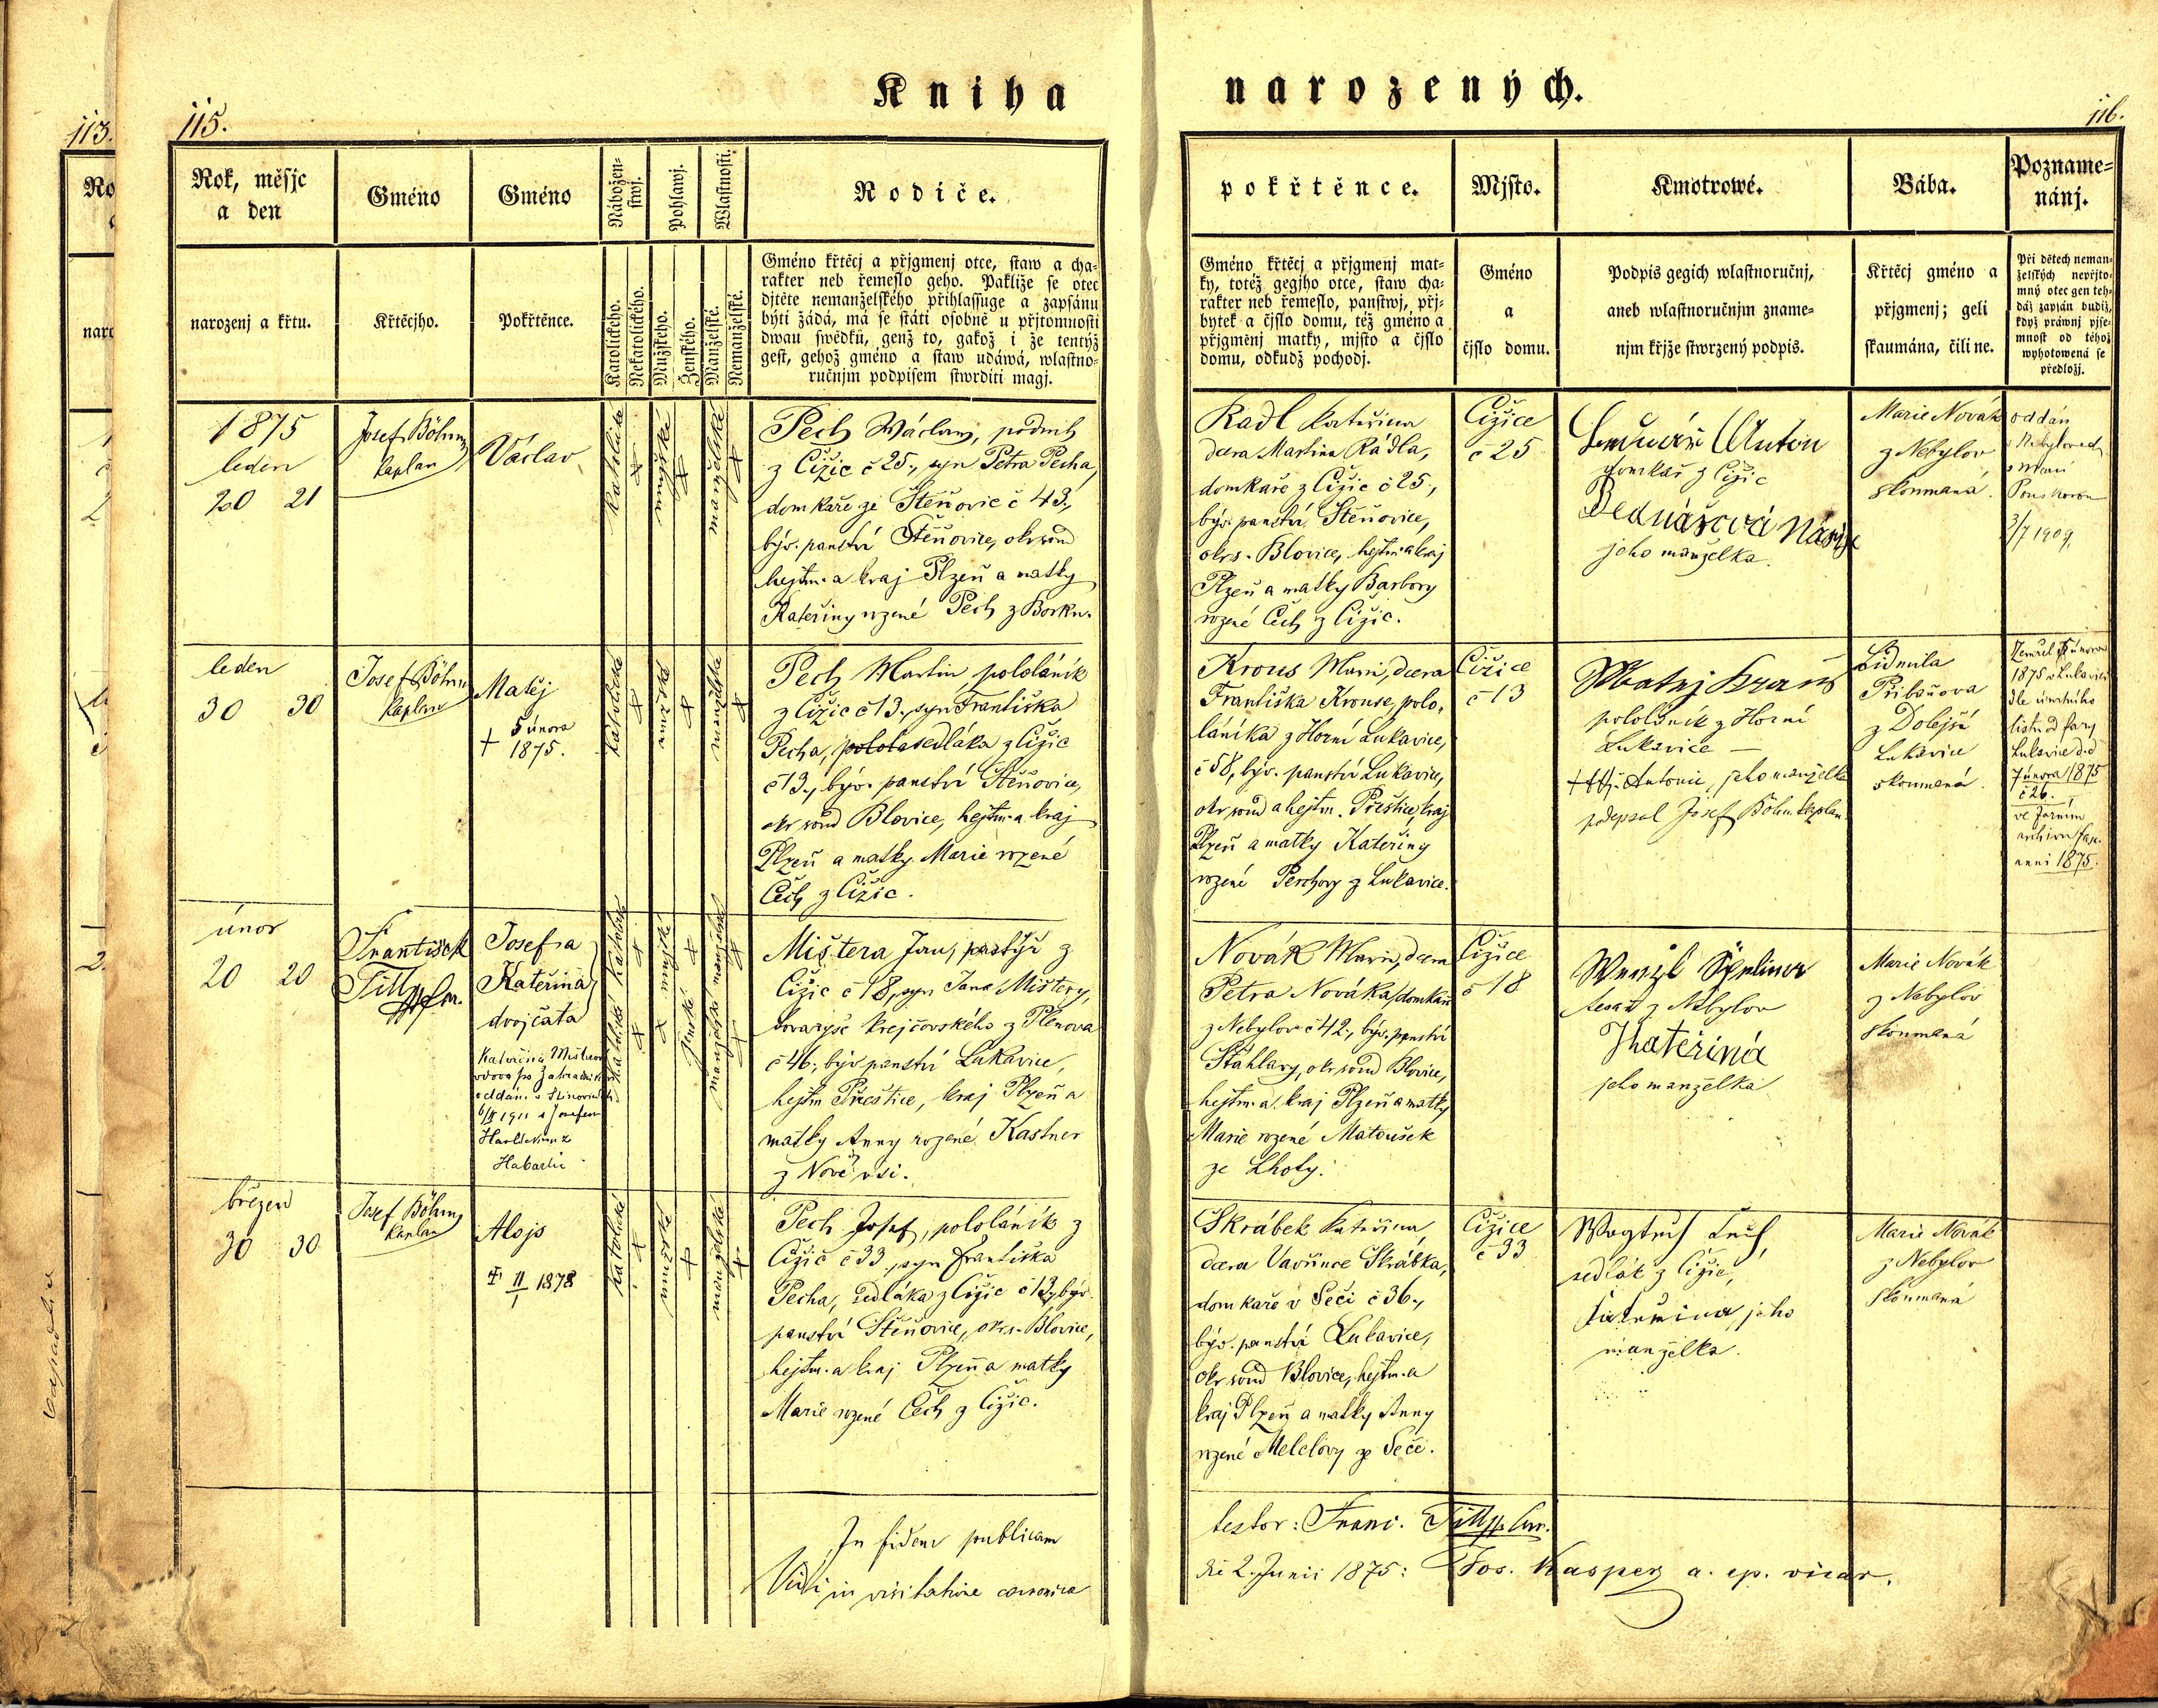 Kniha
narozených.
113.
115.
116.
Rok, měsjc
a den
Gméno
Gméno
Nábožen-
stwj.
Pohlawj.
Wlastnosti.
Rodiče.
narozenj a křtu.
Křtěcjho.
Pokřtěnce.
Katolického.
Nekatolického.
Mužského.
Ženského.
Manželské.
Nemanželské.
Gméno křtěcj a přjgmenj otce, staw a cha-
rakter neb řemeslo geho. Pakliže se otec
djtěte nemanželského přihlassuge a zapsánu
býti žádá, má se státi osobně u přjtomnosti
dwau swědků, genž to, gakož i že tentýž
gest, gehož gméno a staw udáwá, wlastno-
ručnjm podpisem stwrditi magj.
1875
leden
20 21
Josef Böhm
kaplan
Václav
katolické
mužské
manželské
Pech Wáclaw, podruh
z Čižic č 25., syn Petra Pecha,
domkaře ze Štěňovic č 43.,
býv. panství Štěňovice, okr soud
hejtm. a kraj Plzeň a matky
Kateřiny rozené Pech z Borku.
leden
30 30
Josef Böhm
kaplan
Matěj
† 5 února
1875.
Pech Martin, pololáník
z Čižic č 13., syn Františka
Pecha, sedláka z Čižic
č 13., býv. panství Štěňovice,
okr soud Blovice, hejtm. a kraj
Plzeň a matky Marie rozené
Čech z Čižic.
únor
20 20
František
Josef a
Kateřina
dvojčata
Mištera Jan, pastýř z
Čižic č 18, syn Jana Mištery,
tovaryše krejčovského z Plenova
č 46., býv panství Lukavice,
hejtm Přeštice, kraj Plzeň a
matky Anny rozené Kastner
z Nové vsi.
březen
30 30
Josef Böhm
kaplan
Alojs
1878
Pech Josef, pololáník z
Čižic č 33., syn Františka
Pecha, sedláka z Čižic č 13, býv.
panství Štěňovice, okrs. Blovice,
hejtm. a kraj Plzeň a matky
Marie rozené Čech z Čižic.
In fidem publicam
Vidi in visitatione canonica
pokřtěnce.
Mjsto.
Kmotrowé.
Bába.
Pozname-
nánj.
Gméno křtěcj a přjgmenj mat-
ky, totéž gegjho otce, staw cha-
rakter neb řemeslo, panstwj, přj-
bytek a čjslo domu, též gméno a
přjgměnj matky, mjsto a čjslo
domu, odkudž pochodj.
Gméno
a
čjslo domu.
Podpis gegich wlastnoručnj,
aneb wlastnoručnjm zname-
njm křjže stwrzený podpis.
Křtěcj gméno a
přjgmenj; geli
skaumána, čili ne.
Při dětech neman-
želských nepřjto-
mný otec gen teh-
dáž zapsán budiž,
když práwnj pjse-
mnost od téhož
wyhotowená se
předložj.
Radl Kateřina
dcera Martina Rádla,
domkaře z Čižic č 25.,
býv. panství Štěňovice,
okrs. Blovice, hejtm. a kraj
Plzeň a matky Barbory
rozené Čech z Čižic.
Čižice
č 25
Anton
domkař z Čižic
jeho manželka.
Marie Novák
z Nebylov
skoumaná.
oddán
3/7 1909.
Krous Marie, dcera
Františka Krouse, polo-
láníka z Horní Lukavice,
č 58, býv. panství Lukavice,
okr soud a hejtm. Přeštice, kraj
Plzeň a matky Kateřiny
rozené Perchovy z Lukavice.
Čižice
č 13
Matej Kraus
pololáník z Horní
Lukavice –
††† Antonie, jeho manželka
podepsal Josef Böhm kaplan.
Lidmila
Přibáňova
z Dolejší
Lukavice
skoumaná.
Zemřel 5 února
1875 v Lukavici
dle úmrtního
listu od fary
Lukavice d.d
7 února 1875
č 26.
anni 1875.
Novák Marie, dcera
Petra Nováka, domkaře
z Nebylov č 42., býv. panství
Šťáhlavy, okr soud Blovice,
hejtm. a kraj Plzeň a matky
Marie rozené Matoušek
ze Lhoty.
Čižice
č 18
Wenzl
tesař z Nebylov
Katěrina
jeho manželka
Marie Novák
z Nebylov
skoumaná
Skrábek Kateřina,
dcera Vavřince Skrábka,
domkaře v Seči č 36.,
býv. panství Lukavice,
okr soud Blovice, hejtm. a
kraj Plzeň a matky Anny
rozené Melclovy ze Seče.
Čižice
č 33
sedlák z Čižic,
jeho
manželka.
Marie Novák
z Nebylov
skoumaná
testor: Franc.
die 2. Junii 1875: Jos. Kasper a. ep. vicar.